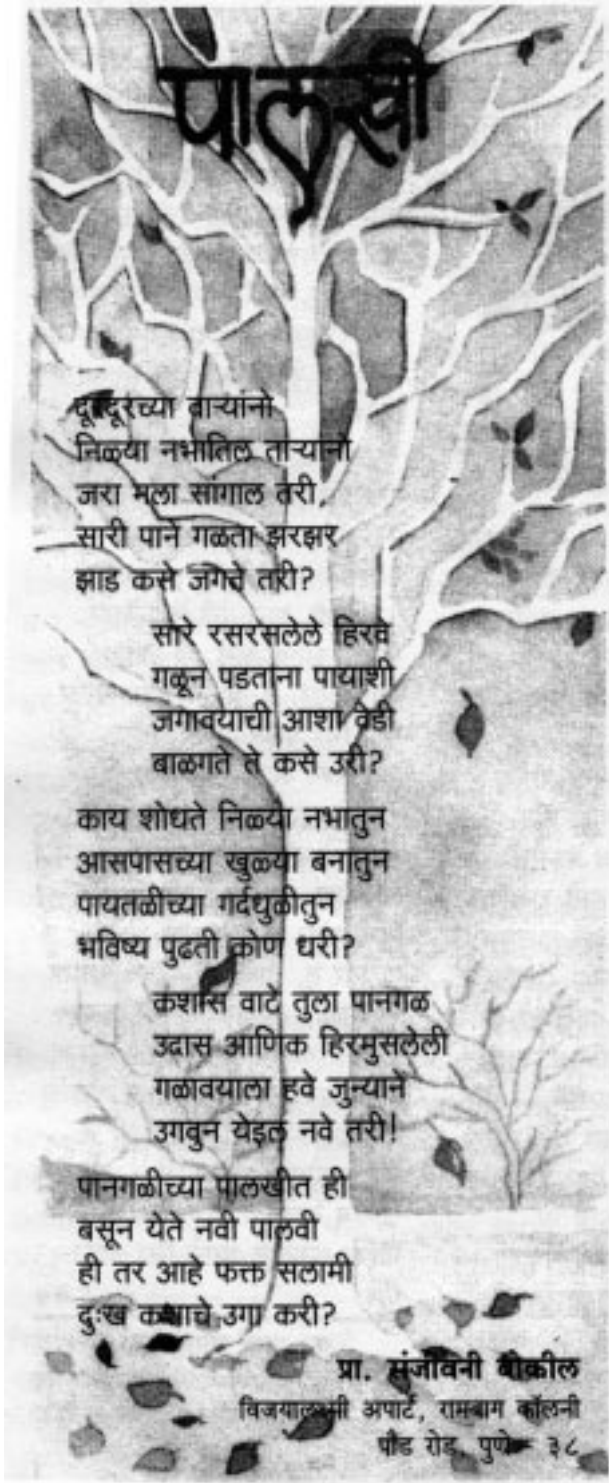 पालखी
दूरदूरच्या ताऱ्यांनो
निळ्या नभातिल ताऱ्यांनो
जरा मला सांगाल तरी,
सारी पाने गळता झरझर
झाड कसे जगते तरी?
सारे रसरसलेले हिरवे
गळून पडताना पायाशी
जगावयाची आशा वेडी
बाळगते ते कसे उरी?
काय शोधते निळ्या नभातुन
आसपासच्या खुळ्या बनातुन
पायतळीच्या गर्दधुळीतुन
भविष्य पुढती कोण धरी?
कशास वाटे तुला पानगळ
उदास आणिक हिरमुसलेली
गळावयाला हवे जुन्याने
उगवुन येइल नवे तरी!
पानगळीच्या पालखीत ही
बसून येते नवी पालवी
ही तर आहे फक्त सलामी
दुःख कशाचे उगा करी?
प्रा. संजीवनी बोकील
विजयालक्ष्मी अपार्ट, रामबाग कॉलनी
पौड रोड, पुणे - ३८